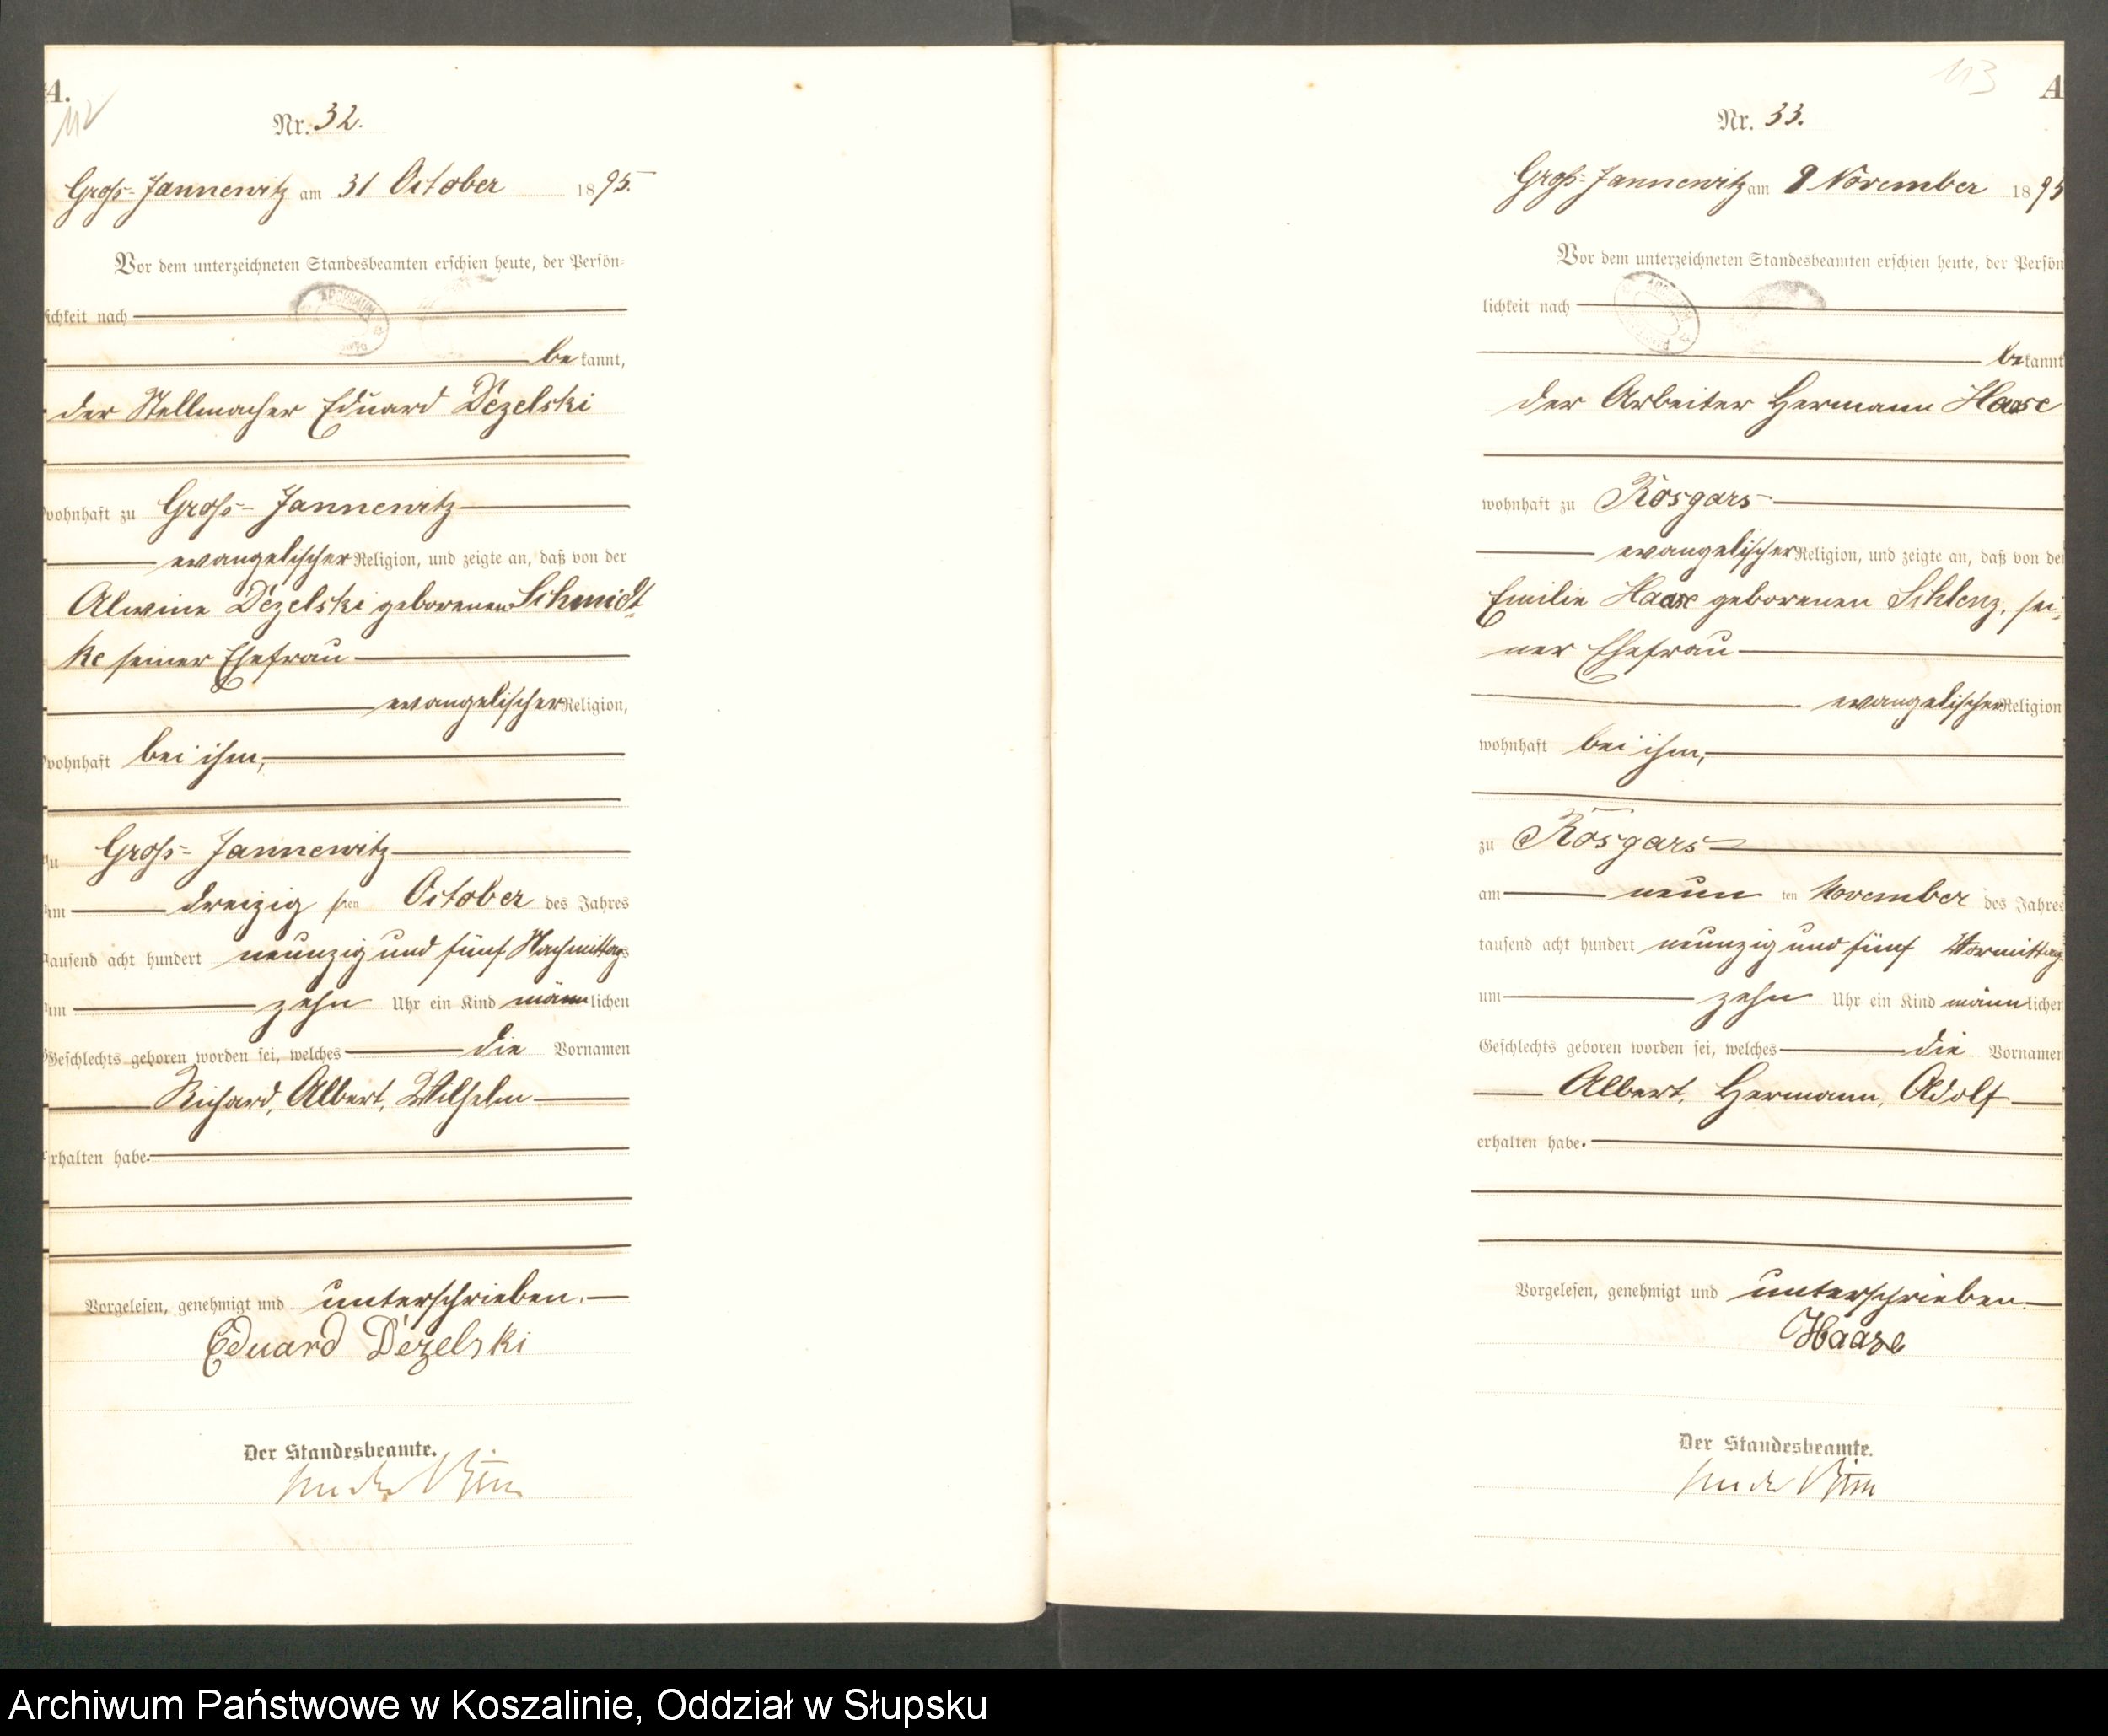 A.
112
Nr. 32.
Groß-Jannewitz am 31 October 1895.
Vor dem unterzeichneten Standesbeamten erschien heute, der Persön-
lichkeit nach
bekannt,
der Stellmacher Eduard Dézelski
wohnhaft zu Groß-Jannewitz
evangelischer Religion, und zeigte an, daß von der
Alwine Dézelski geborenen Schmidt-
ke seiner Ehefrau
evangelischer Religion,
wohnhaft bei ihm,
zu Groß-Jannewitz
am dreizigsten October des Jahres
tausend acht hundert neunzig und fünf Nachmittags
um zehn Uhr ein Kind männlichen
Geschlechts geboren worden sei, welches die Vornamen
Richard, Albert, Wilhelm
erhalten habe.
Vorgelesen, genehmigt und unterschrieben.
Eduard Dézelski
Der Standesbeamte.
113
A
Nr. 33.
Groß-Jannewitz am 9 November 1895
Vor dem unterzeichneten Standesbeamten erschien heute, der Persön
lichkeit nach
bekannt
der Arbeiter Hermann Haase
wohnhaft zu Rosgars
evangelischer Religion, und zeigte an, daß von der
Emilie Haase geborenen Schlenz, sei-
ner Ehefrau
evangelischer Religion
wohnhaft bei ihm,
zu Rosgars
am neunten November des Jahres
tausend acht hundert neunzig und fünf Vormittag
um zehn Uhr ein Kind männlichen
Geschlechts geboren worden sei, welches die Vornamen
Albert, Hermann, Adolf
erhalten habe.
Vorgelesen, genehmigt und unterschrieben
Haase
Der Standesbeamte.
Archiwum Państwowe w Koszalinie, Oddział w Słupsku